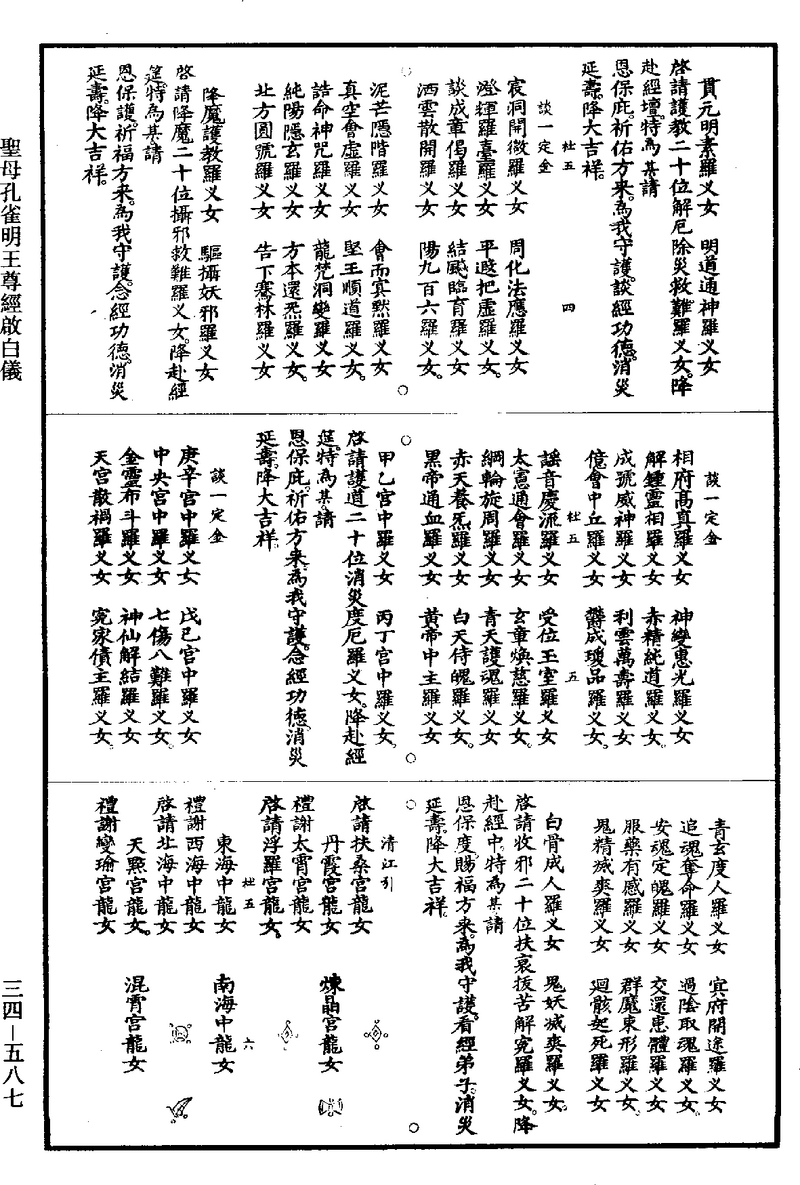 貫元明素羅义女　明道通神羅义女
啓請護教二十位解厄除災救難羅义女。降
赴經壇。特為某請
恩保庇。祈佑方来。為我守護。談經功德。消災
延壽。降大吉祥。
杜五　四
談一定金
宸洞開微羅义女　周化法應羅义女
澄輝羅臺羅义女　平遐把虛羅义女。
談成章偈羅义女　結飈臨育羅义女
洒雲散開羅义女　陽九百六羅义女。
○　○
泥芒隱階羅义女　會而寘黙羅义女
真空會虛羅义女　堅王順道羅义女。
誥命神咒羅义女　龍梵洞變羅义女
純陽隱玄羅义女　方本還炁羅义女。
北方圓號羅义女　告下騫林羅义女
降魔護教羅义女　驅攝妖邪羅义女
啓請降魔二十位攝邪救難羅义女。降赴經
筵。特為某請
恩保護。祈福方来。為我守護。念經功德。消災
延壽。降大吉祥。
談一定金
相府髙真羅义女　神變惠光羅义女
解鍾靈相羅义女　赤精純道羅义女。
成號威神羅义女　利雲萬壽羅义女
億會中丘羅义女　欝成瓊品羅义女。
杜五　五
謡音慶流羅义女　受位王室羅义女。
太憲通會羅义女　玄章煥慈羅义女
綱輪旋周羅义女　青天護魂羅义女
赤天養炁羅义女　白天侍魄羅义女。
黒帝通血羅义女　黄帝中主羅义女
○　○
甲乙宮中羅义女　丙丁宮中羅义女。
啓請護道二十位消災度厄羅义女。降赴經
筵。特為某請
恩保庇。祈佑方来。為我守護。念經功德。消災
延壽。降大吉祥。
談一定金
庚辛宮中羅义女　戊己宮中羅义女
中央宮中羅义女　七傷八難羅义女。
金靈布斗羅义女　神仙解結羅义女
天宮散禍羅义女　寃家債主羅义女。
青玄度人羅义女　宾府開途羅义女
追魂奪命羅义女　過陰取魂羅义女。
安魂定魄羅义女　交還患體羅义女
服藥有感羅义女　群魔束形羅义女
鬼精滅爽羅义女　迴骸起死羅义女
白骨成人羅义女　鬼妖滅爽羅义女。
啓請收邪二十位扶哀拔苦解寃羅义女。降
赴經中。特為某請
恩保度。賜福方来。為我守護。看經弟子。消災
延壽。降大吉祥。
○　○
清江引
啓請扶桑宮龍女
丹霞宮龍女　煉晶宮龍女
禮謝太霄宮龍女
啓請浮羅宮龍女。
杜五　六
東海中龍女　南海中龍女
禮謝西海中龍女
啓請北海中龍女
天㸃宮龍女。　混霄宮龍女
禮謝變瑜宮龍女
聖母孔雀明王尊經啟白儀
三四—五八七